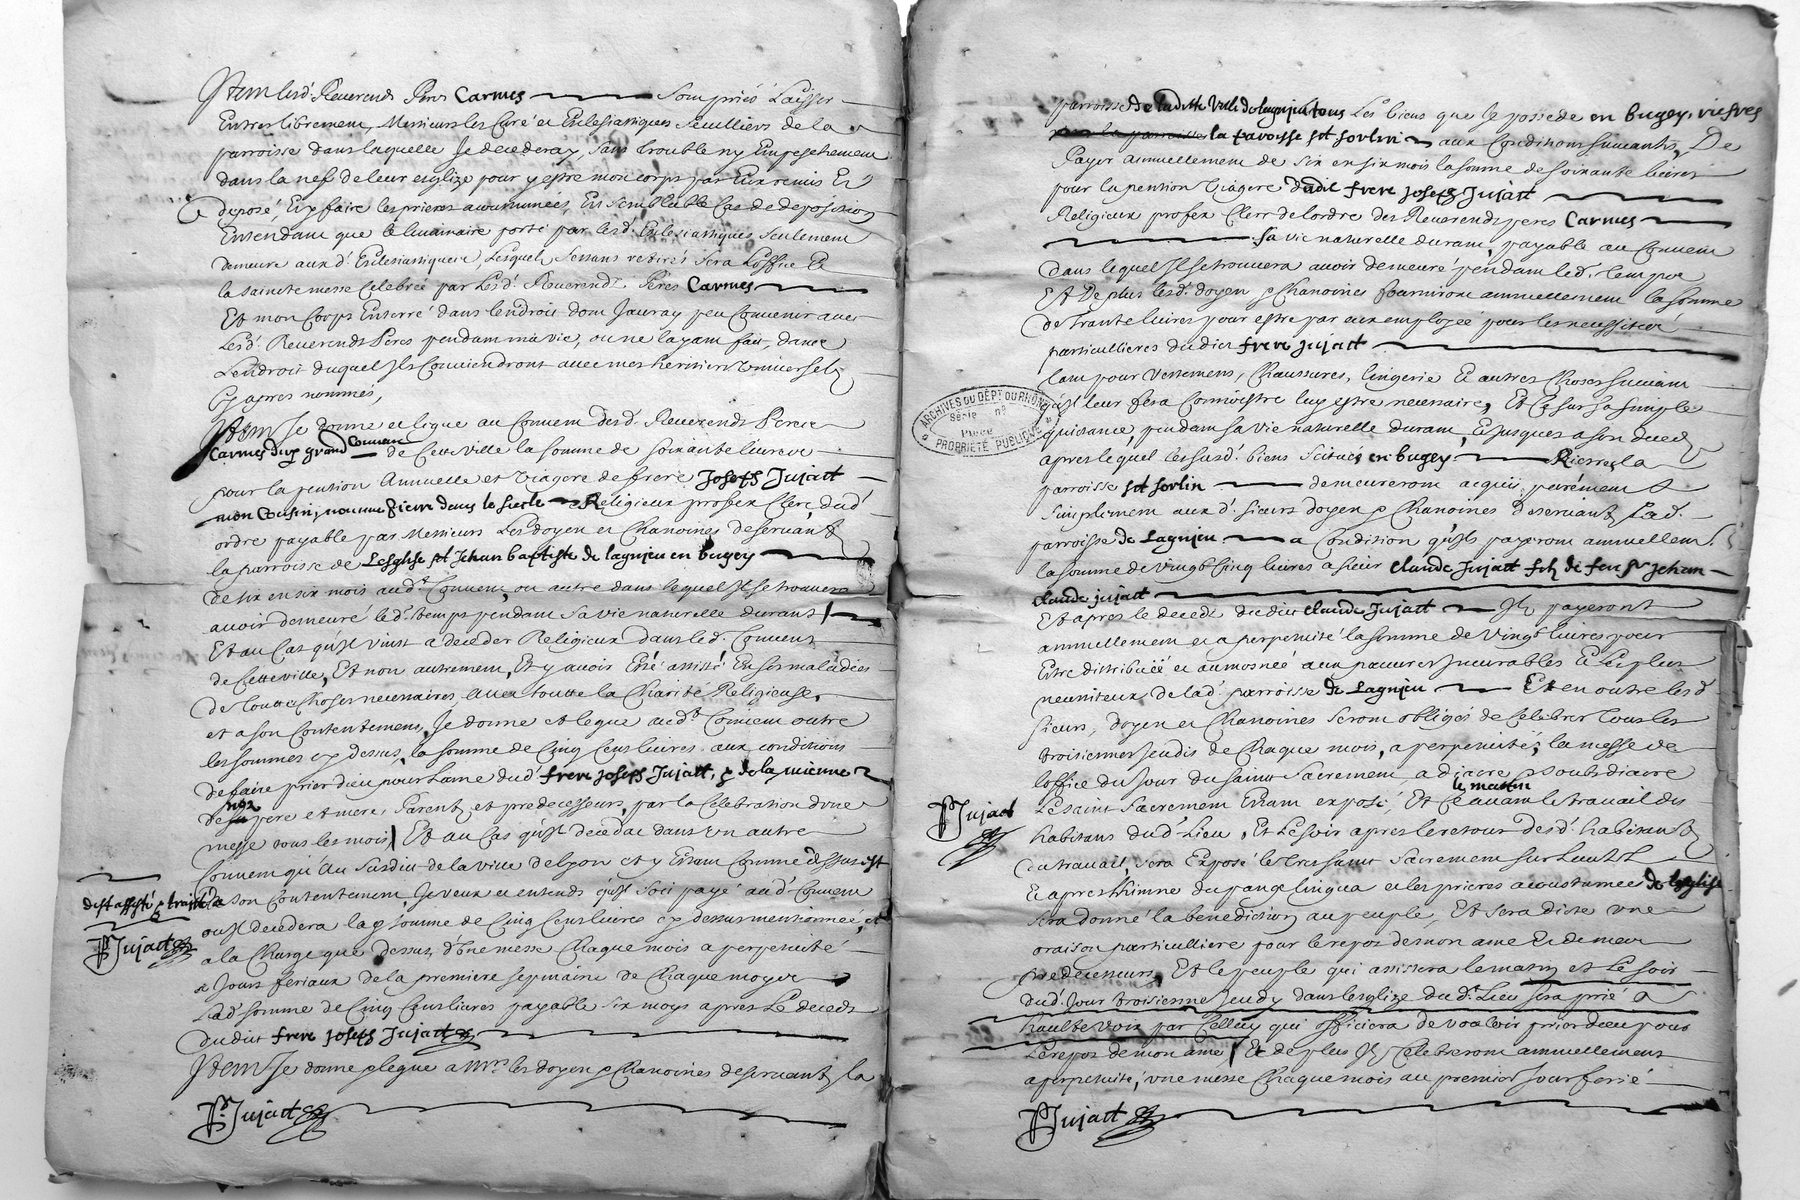 Item lesd. Reverends Peres Carmes sont priés Laisser
Entrer librement, Messieurs les Curé et Eclesiastiques seculliers de la
parroisse dans laquelle Je decederay, sans trouble ny Empeschement
dans la nef de leur esglize pour y estre mon corps par Eux remis Et
deposé, Et y faire les prieres accoutumées En semblable Cas de deposition
Entendant que le luminaire porté par lesd. Eclesiastiques seulement
demeure auxd. Eclesiastiques, Lesquels sestans retirés sera L'office Et
la saincte messe Celebrée par Lesd. Reverends Peres Carmes
Et mon Corps Enterré dans lendroit dont Jauray peu Convenir avec
Lesd. Reverends Peres pendant ma vie, ou ne layant fait, dans
Lendroit duquel Ils Conviendront avec mes heritiers Universels
Cy apres nommés,
Item Je donne et legue au Convent desd. Reverends Peres
Carmes du grand Couvant de Cette ville la somme de soixante livres
pour la pention Annuelle et Viagere de frere Joseph Jujatt
mon Cousin, nommé Pierre dans le siecle Religieux profex Clerc dud.
ordre payable par Messieurs Les doyen et Chanoines deservants
la parroisse de Lesglise st Jehan baptiste de lagnieu en bugey
de six en six mois aud. Convent, ou autre dans lequel Il se trouvera
avoir demeuré led. temps pendant sa vie naturelle durant
Et au Cas qu'il vinst a deceder Religieux dans led. Convent
de Cette ville, Et non autrement, Et y avoir Eté assisté En ses maladies
de toutes Choses necessaires avec toutte la Charité Religieuse,
et a son Contentement, Je donne et legue aud. Convent outre
les sommes cy dessus, la somme de Cinq Cens livres aux conditions
de faire prier dieu pour Lame dud. frere Joseph Jujatt, & de la mienne
de nos pere et mere, Parents et predecesseurs, par la Celebration d'une
messe tous les mois Et au Cas qu'il decedat dans Un autre
Convent qu'Au susdit de la ville de Lyon et y Etant Comme dessus est
dit assisté & traitté
a son Contentement, Je veux et entends qu'il soit payé aud. Convent
Jujatt
ou Il decedera la somme de Cinq Cens livres cy dessus mentionnée, et
a la Charge que dessus, d'Une messe Chaque mois a perpetuité
a Jours feriaux de la premiere sepmaine de Chaque moys
Lad. somme de Cinq Cens livres payable six moys apres Le deceds
dudit frere Joseph Jujatt
Item Je donne & legue a Mrs les doyen & Chanoines deservants la
Jujatt
parroisse de laditte Ville de lagnieu tous Les biens que Je possede en bugey, riesre
la paroisse st sorlin aux Conditions suivantes, De
Payer annuellement de six en six mois la somme de soixante livres
pour la pention Viagere dudit frere Joseph Jujatt
Religieux profex Clerc de lordre des Reverends peres Carmes
sa vie naturelle durant, payable au Convent
dans lequel Il se trouvera avoir demeuré pendant led. temps
Et De plus lesd. doyen & Chanoines fourniront annuellement la somme
de trante livres pour estre par eux employée pour les necessités
particullieres dudict frere Jujatt
tant pour Vestemens, Chaussures, lingerie Et autres Choses suivant
qu'Il leur fera Connoistre luy estre necessaire, Et Ce sur sa simple
quittance, pendant sa vie naturelle durant, Et Jusques a son deceds
apres lequel les susd. biens scitués en bugey Rierre la
parroisse st sorlin demeureront acquis purement &
simplement aux d. sieurs doyen & Chanoines deservants Lad.
parroisse de Lagnieu a Condition qu'ils payeront annuellemt.
la somme de Vingt Cinq livres a sieur Claude Jujatt fils de feu Sr Jehan
claude jujatt
Et apres le deceds dudict Claude Jujatt Ils payeront
annuellement et a perpetuité la somme de Vingt livres pour
Estre distribuéé et aumosnéé aux pauvres Incurables Et Les plus
necessiteux de lad. parroisse de Lagnieu Et en outre lesd.
sieurs, doyen et Chanoines seront obligés de Celebrer tous les
troisiemes Jeudis de Chaque mois, a perpetuité, la messe de
loffice du Jour du saint Sacrement, a diacre & soubsdiacre
Le saint Sacrement Etant exposé, Et Ce avant le matin le travail des
Jujatt
habitans dud. Lieu, Et Le soir apres le retour desd. habitants
du travail, sera Exposé le tres saint Sacrement sur Lautel
Et apres lhimne du pange lingua et les prieres accoustumées de leglise
sera donné la benediction au peuple, Et sera dicte Une
oraison particulliere pour le repos de mon ame Et de mes
predecesseurs, Et le peuple qui assistera le matin et Le soir
dud. Jour troisieme Jeudy dans lesglize dud. Lieu sera prié a
haulte voix par Celluy qui officiera de vouloir prier dieu pour
Le repos de mon ame Et de plus Ils Celebreront annuellement
a perpetuité, une messe Chaque mois au premier Jour ferié
Jujatt
ARCHIVES DU DÉPT DU RHÔNE
Série nº
Pièce
PROPRIÉTÉ PUBLIQUE